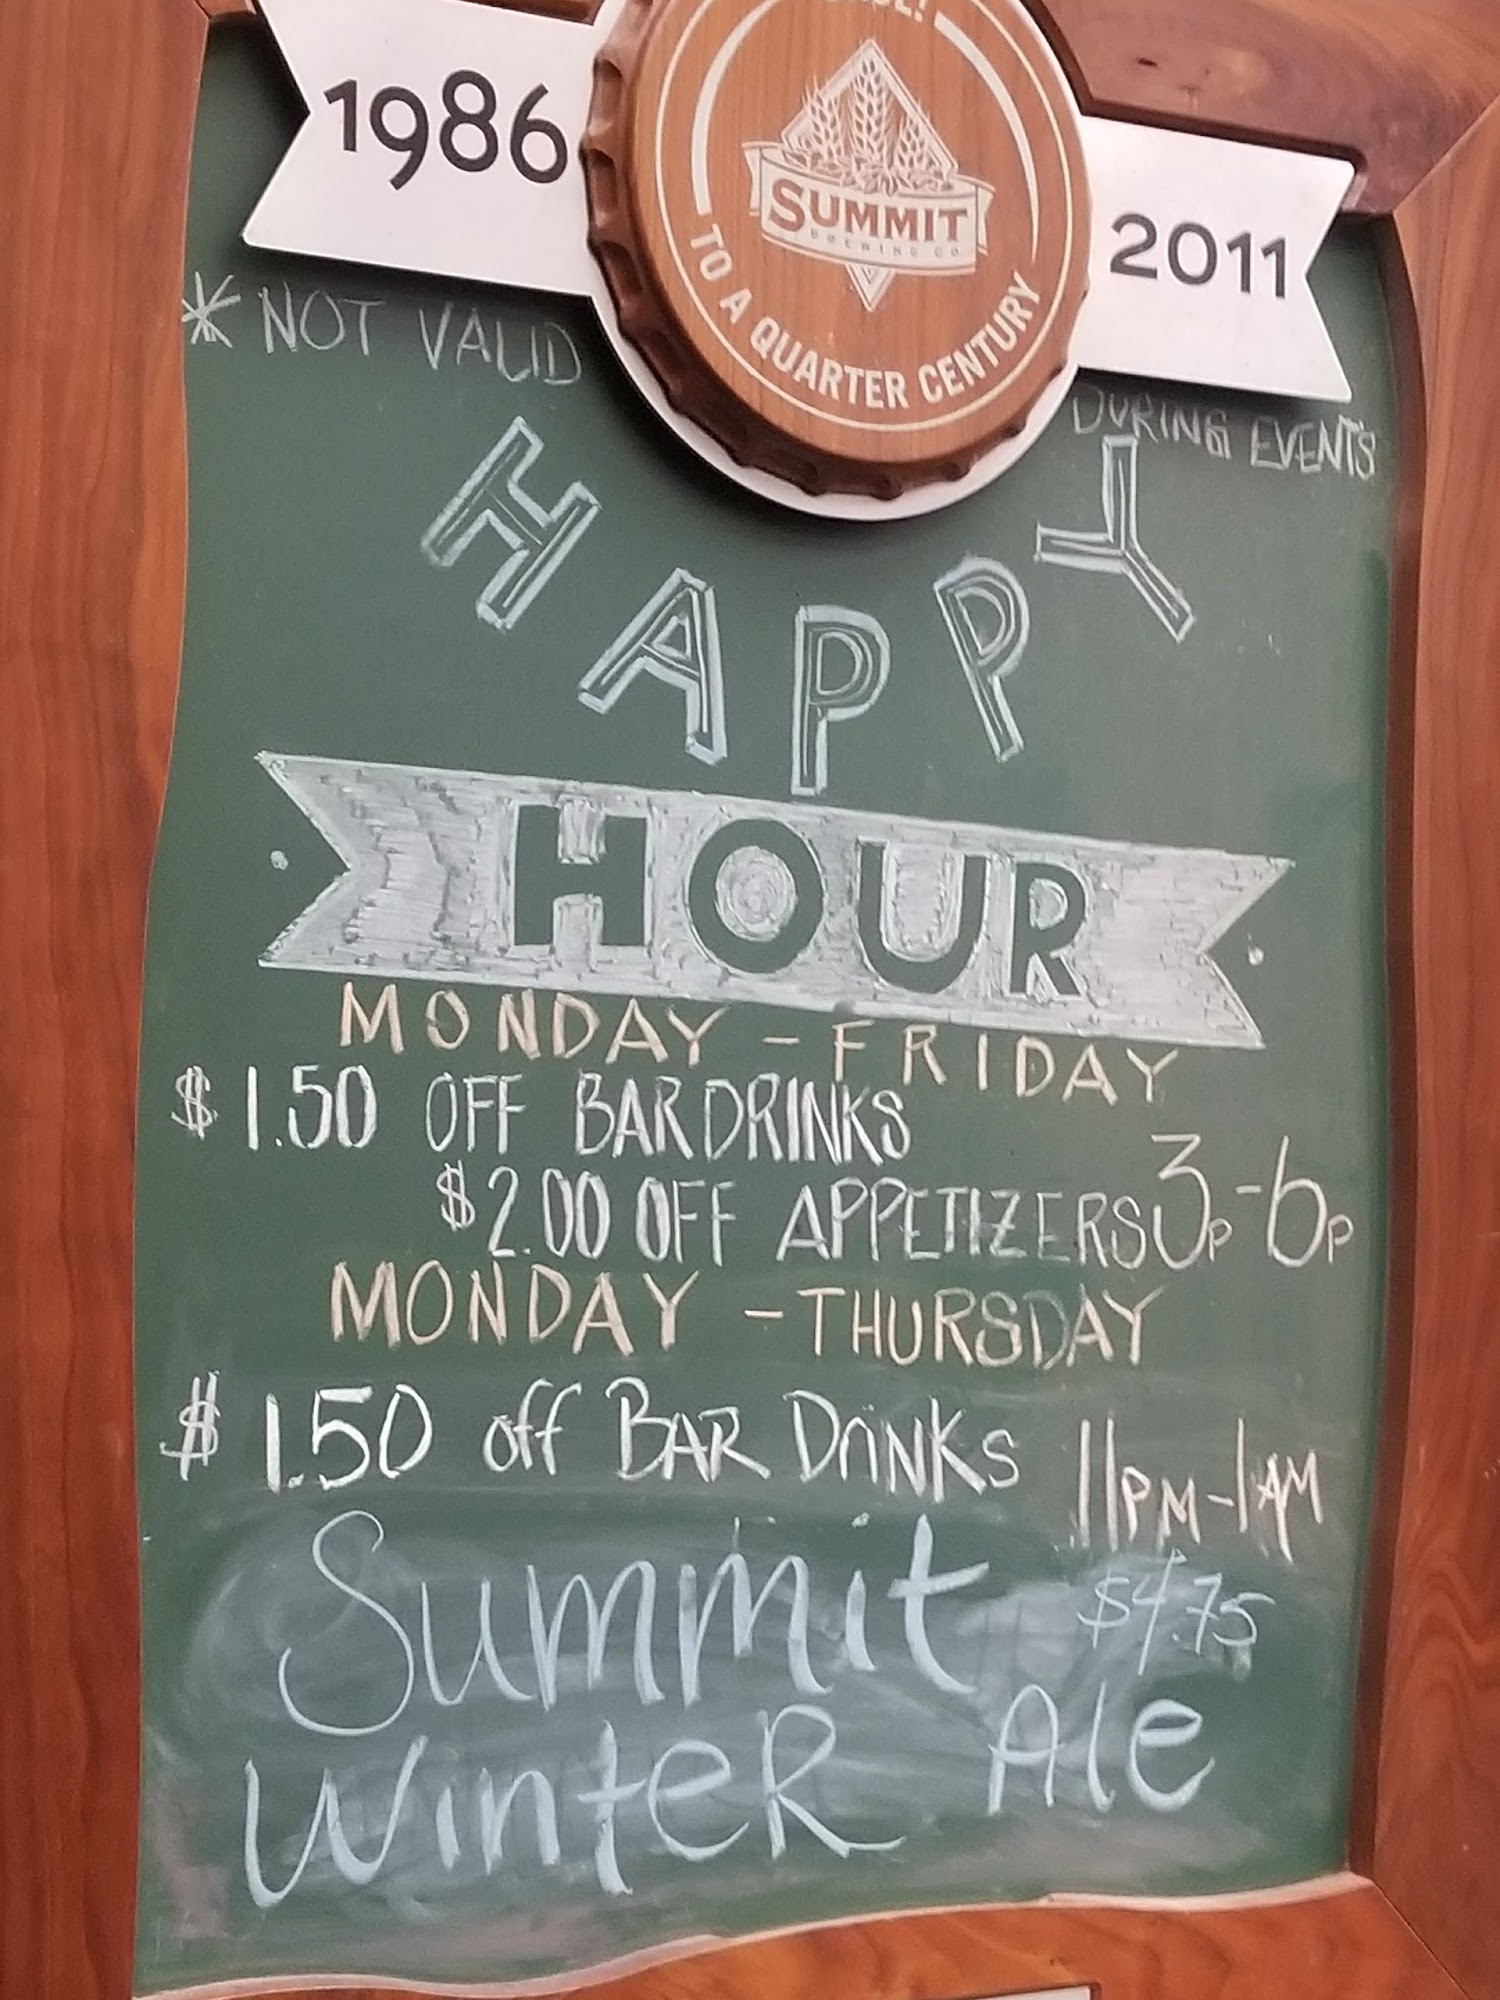 1986
SUMMIT
BREWING CO.
2011
TO A QUARTER CENTURY
* NOT VALID
DURING EVENTS
HAPPY
HOUR
MONDAY - FRIDAY
$1.50 OFF BAR DRINKS
$2.00 OFF APPETIZERS 3P-6P
MONDAY - THURSDAY
$1.50 off BAR DRINKS 11PM-1AM
Summit $4.75
WinteR Ale